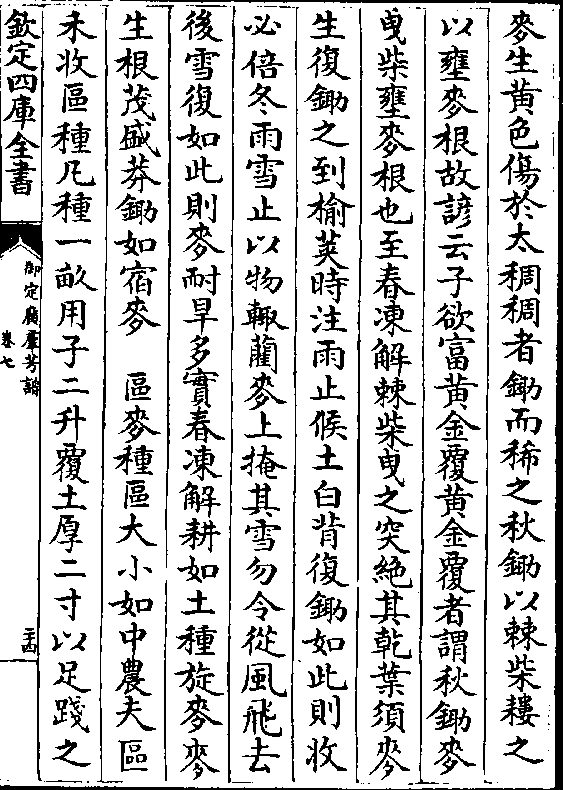 麥生黃色傷於太稠稠者鋤而稀之秋鋤以棘柴耬之
以壅麥根故諺云子欲富黃金覆黃金覆者謂秋鋤麥
曳柴壅麥根也至春凍解棘柴曳之突絕其乾葉須麥
生復鋤之到榆莢時注雨止候土白背復鋤如此則收
必倍冬雨雪止以物輙藺麥上掩其雪勿令從風飛去
後雪復如此則麥耐旱多實春凍解耕如土種旋麥麥
生根茂盛莽鋤如宿麥　區麥種區大小如中農夫區
禾收區種凡種一畝用子二升覆土厚二寸以足踐之
欽定四庫全書
御定廣羣芳譜
卷七
三十四